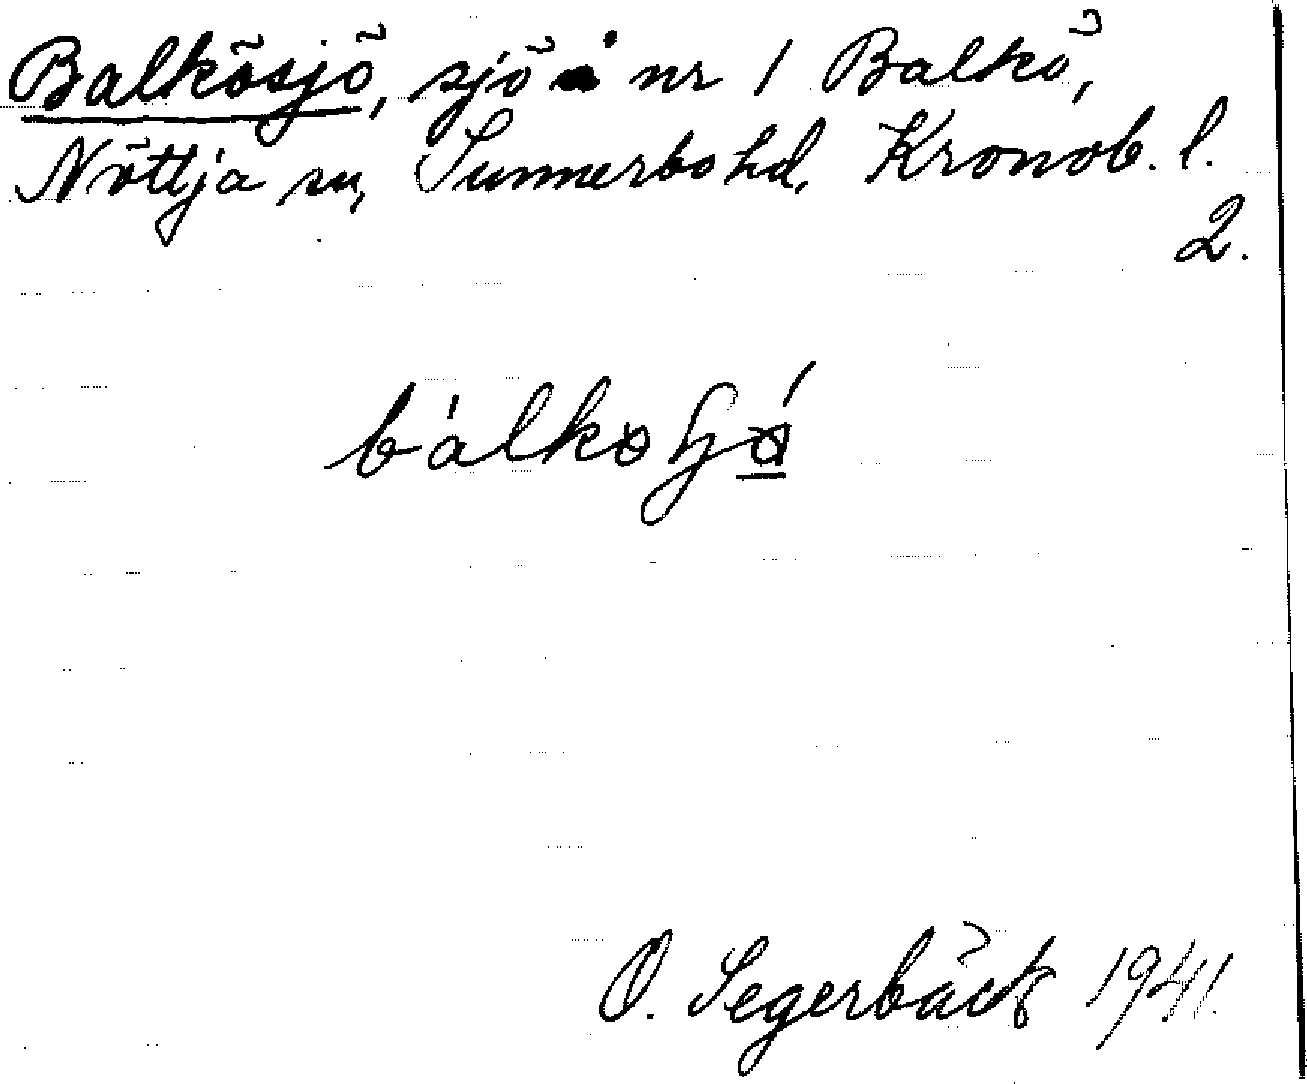 Balkösjö, sjö i nr 1 Balkö,
Nöttja sn, Sunnerbo hd, Kronob. l.
2.
O. Segerbäck 1941.